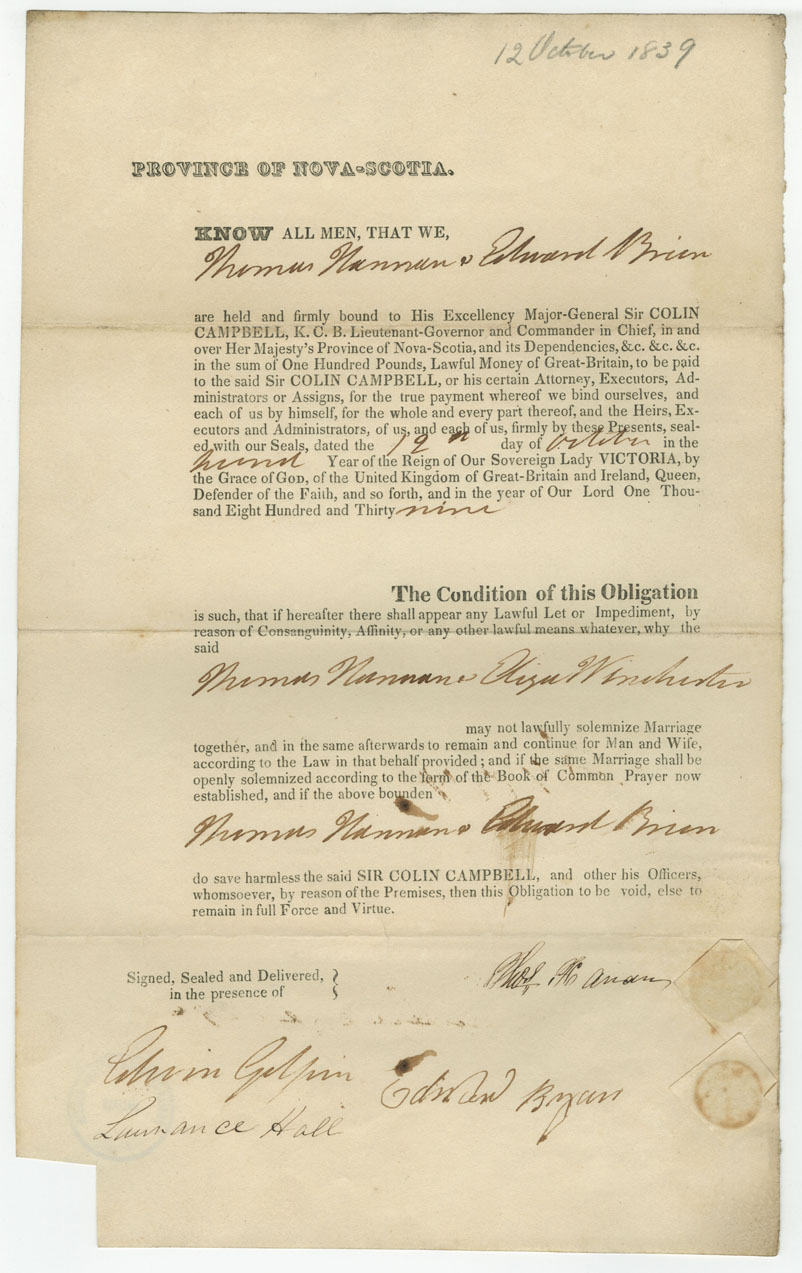 12 October 1839
PROVINCE OF NOVA-SCOTIA.
KNOW ALL MEN, THAT WE,
Thomas Hannan & Edward Brien
are held and firmly bound to His Excellency Major-General Sir COLIN
CAMPBELL, K. C. B. Lieutenant-Governor and Commander in Chief, in and
over Her Majesty's Province of Nova-Scotia, and its Dependencies, &c. &c. &c.
in the sum of One Hundred Pounds, Lawful Money of Great-Britain, to be paid
to the said Sir COLIN CAMPBELL, or his certain Attorney, Executors, Ad-
ministrators or Assigns, for the true payment whereof we bind ourselves, and
each of us by himself, for the whole and every part thereof, and the Heirs, Ex-
ecutors and Administrators, of us, and each of us, firmly by these Presents, seal-
ed with our Seals, dated the day of October in the
Year of the Reign of Our Sovereign Lady VICTORIA, by
the Grace of GOD, of the United Kingdom of Great-Britain and Ireland, Queen,
Defender of the Faith, and so forth, and in the year of Our Lord One Thou-
sand Eight Hundred and Thirty nine
The Condition of this Obligation
is such, that if hereafter there shall appear any Lawful Let or Impediment, by
reason of Consanguinity, Affinity, or any other lawful means whatever, why the
said
Thomas Hannan & Eliza Winchester
may not lawfully solemnize Marriage
together, and in the same afterwards to remain and continue for Man and Wife,
according to the Law in that behalf provided; and if the same Marriage shall be
openly solemnized according to the form of the Book of Common Prayer now
established, and if the above bounden
Thomas Hannan & Edward Brien
do save harmless the said SIR COLIN CAMPBELL, and other his Officers,
whomsoever, by reason of the Premises, then this Obligation to be void, else to
remain in full Force and Virtue.
Signed, Sealed and Delivered,
in the presence of
Thos Hanan
Edwin Gilpin
Edward Ryan
Laurance Hall